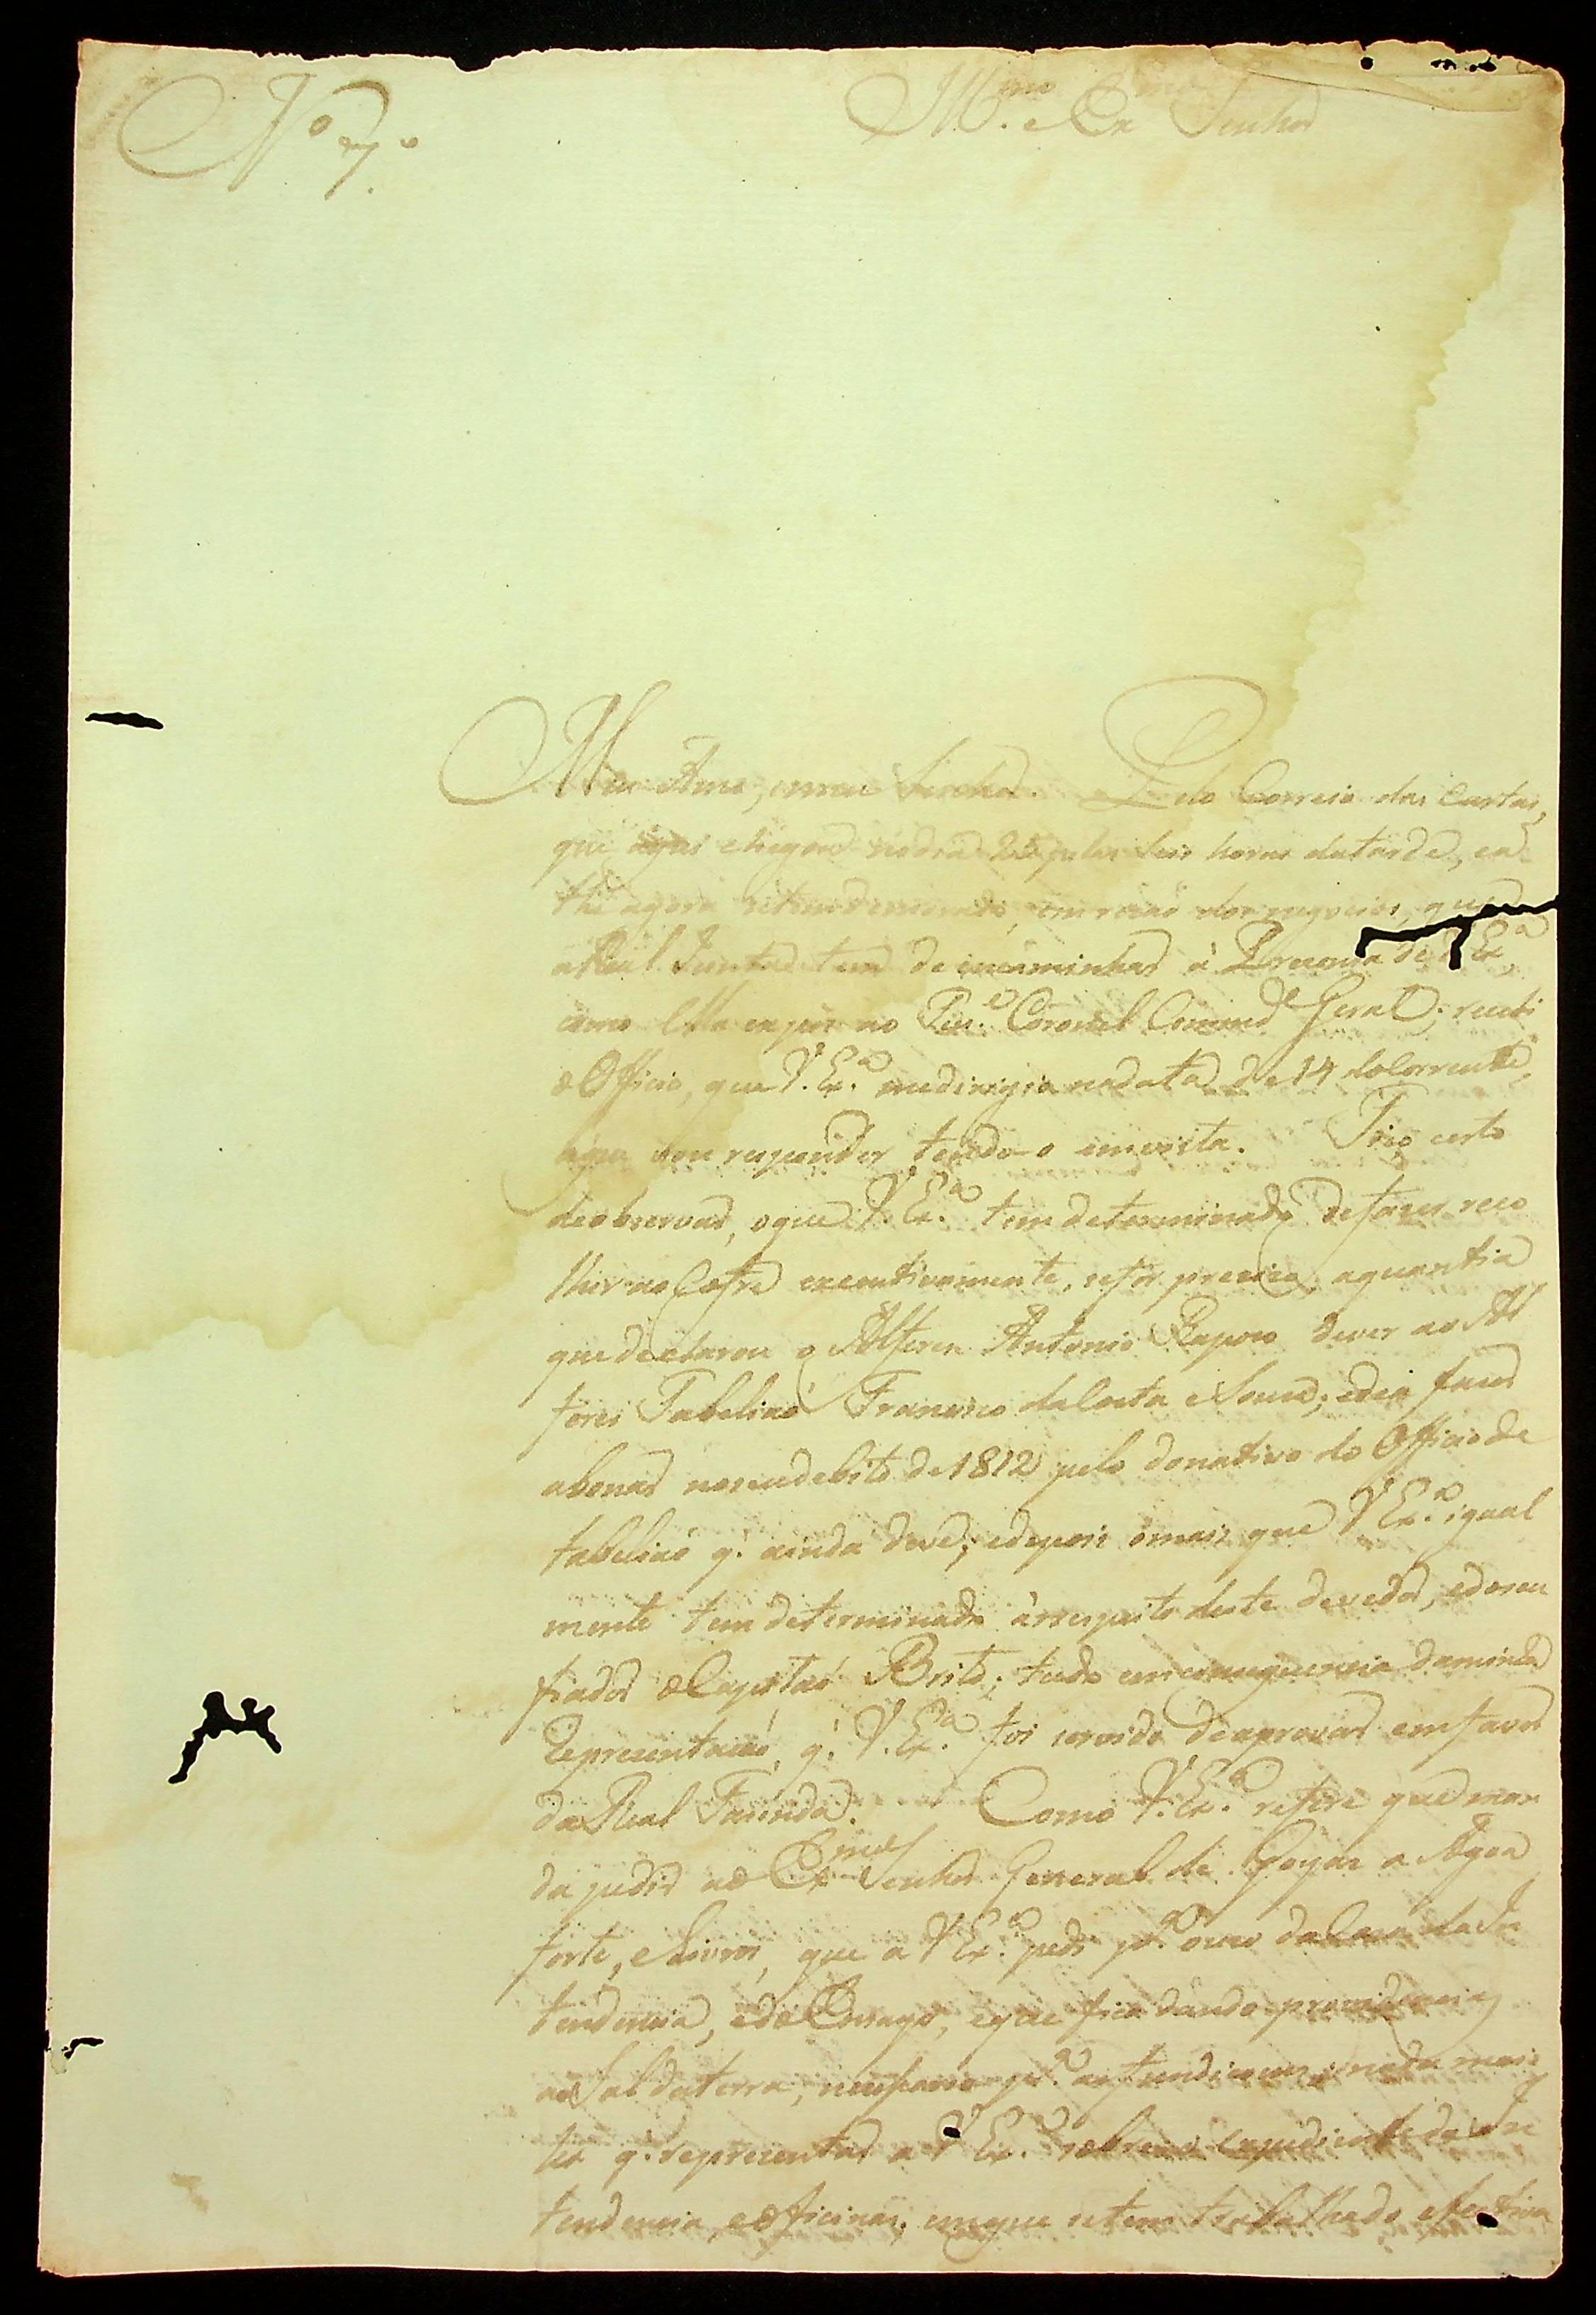 Nº 7.º
Illmo. e Exmo Senhor
Meu Amo, emeu Senhor. Pelo Correio das Cartas,
que aqui chegou nodia 25 pelas seis horas datarde, ea
the agora setem demorado, em rezaõ dos negocios, que
aReal Junta tem de encaminhar á Prezença de V Exª
como Ella expoz ao Ten.e Coronel Comend.e Geral; recebi
o Officio, que V. Ex.ª medirigio nadata de 14 doCorrente,
aque vou responder tendo-o emvista. Fico certo
deobservar, oque V. Ex.ª tem determinado defazer reco
lhir ao Cofre executivamente, sefor precizo, aquantia
quedeclarou o Alferes Antonio Rapozo dever ao Al
feres Tabeliaõ Francisco daCosta eSouza; edea fazer
abonar noseudebito de 1812 pelo donativo do Officio de
tabeliaõ q. ainda deve; edepois omais que V Ex.ª igual
mente tem determinado árrespeito deste devedor, edoseu
fiador oCapitaõ Brito; tudo emconsequencia daminha
Reprezentaçaõ, q. V. Ex.ª foi servido deaprovar emfavor
da Real Fazenda. Como V. Ex.ª refere queman
da pedir ao Exmo Senhor General de Goyaz a Agoa
forte, eLivros, que a V Ex.ª pedi p.ª ouzo daCaza da In
tendencia, edo Ensayo, eque fica dando providencias
ao Sal daterra, necessario p.ª asfundiçoens; nada mais
há q. reprezentar a V Ex.ª sobre o expediente da In
tendencia, eofficinas, emque setem trabalhado effectiva